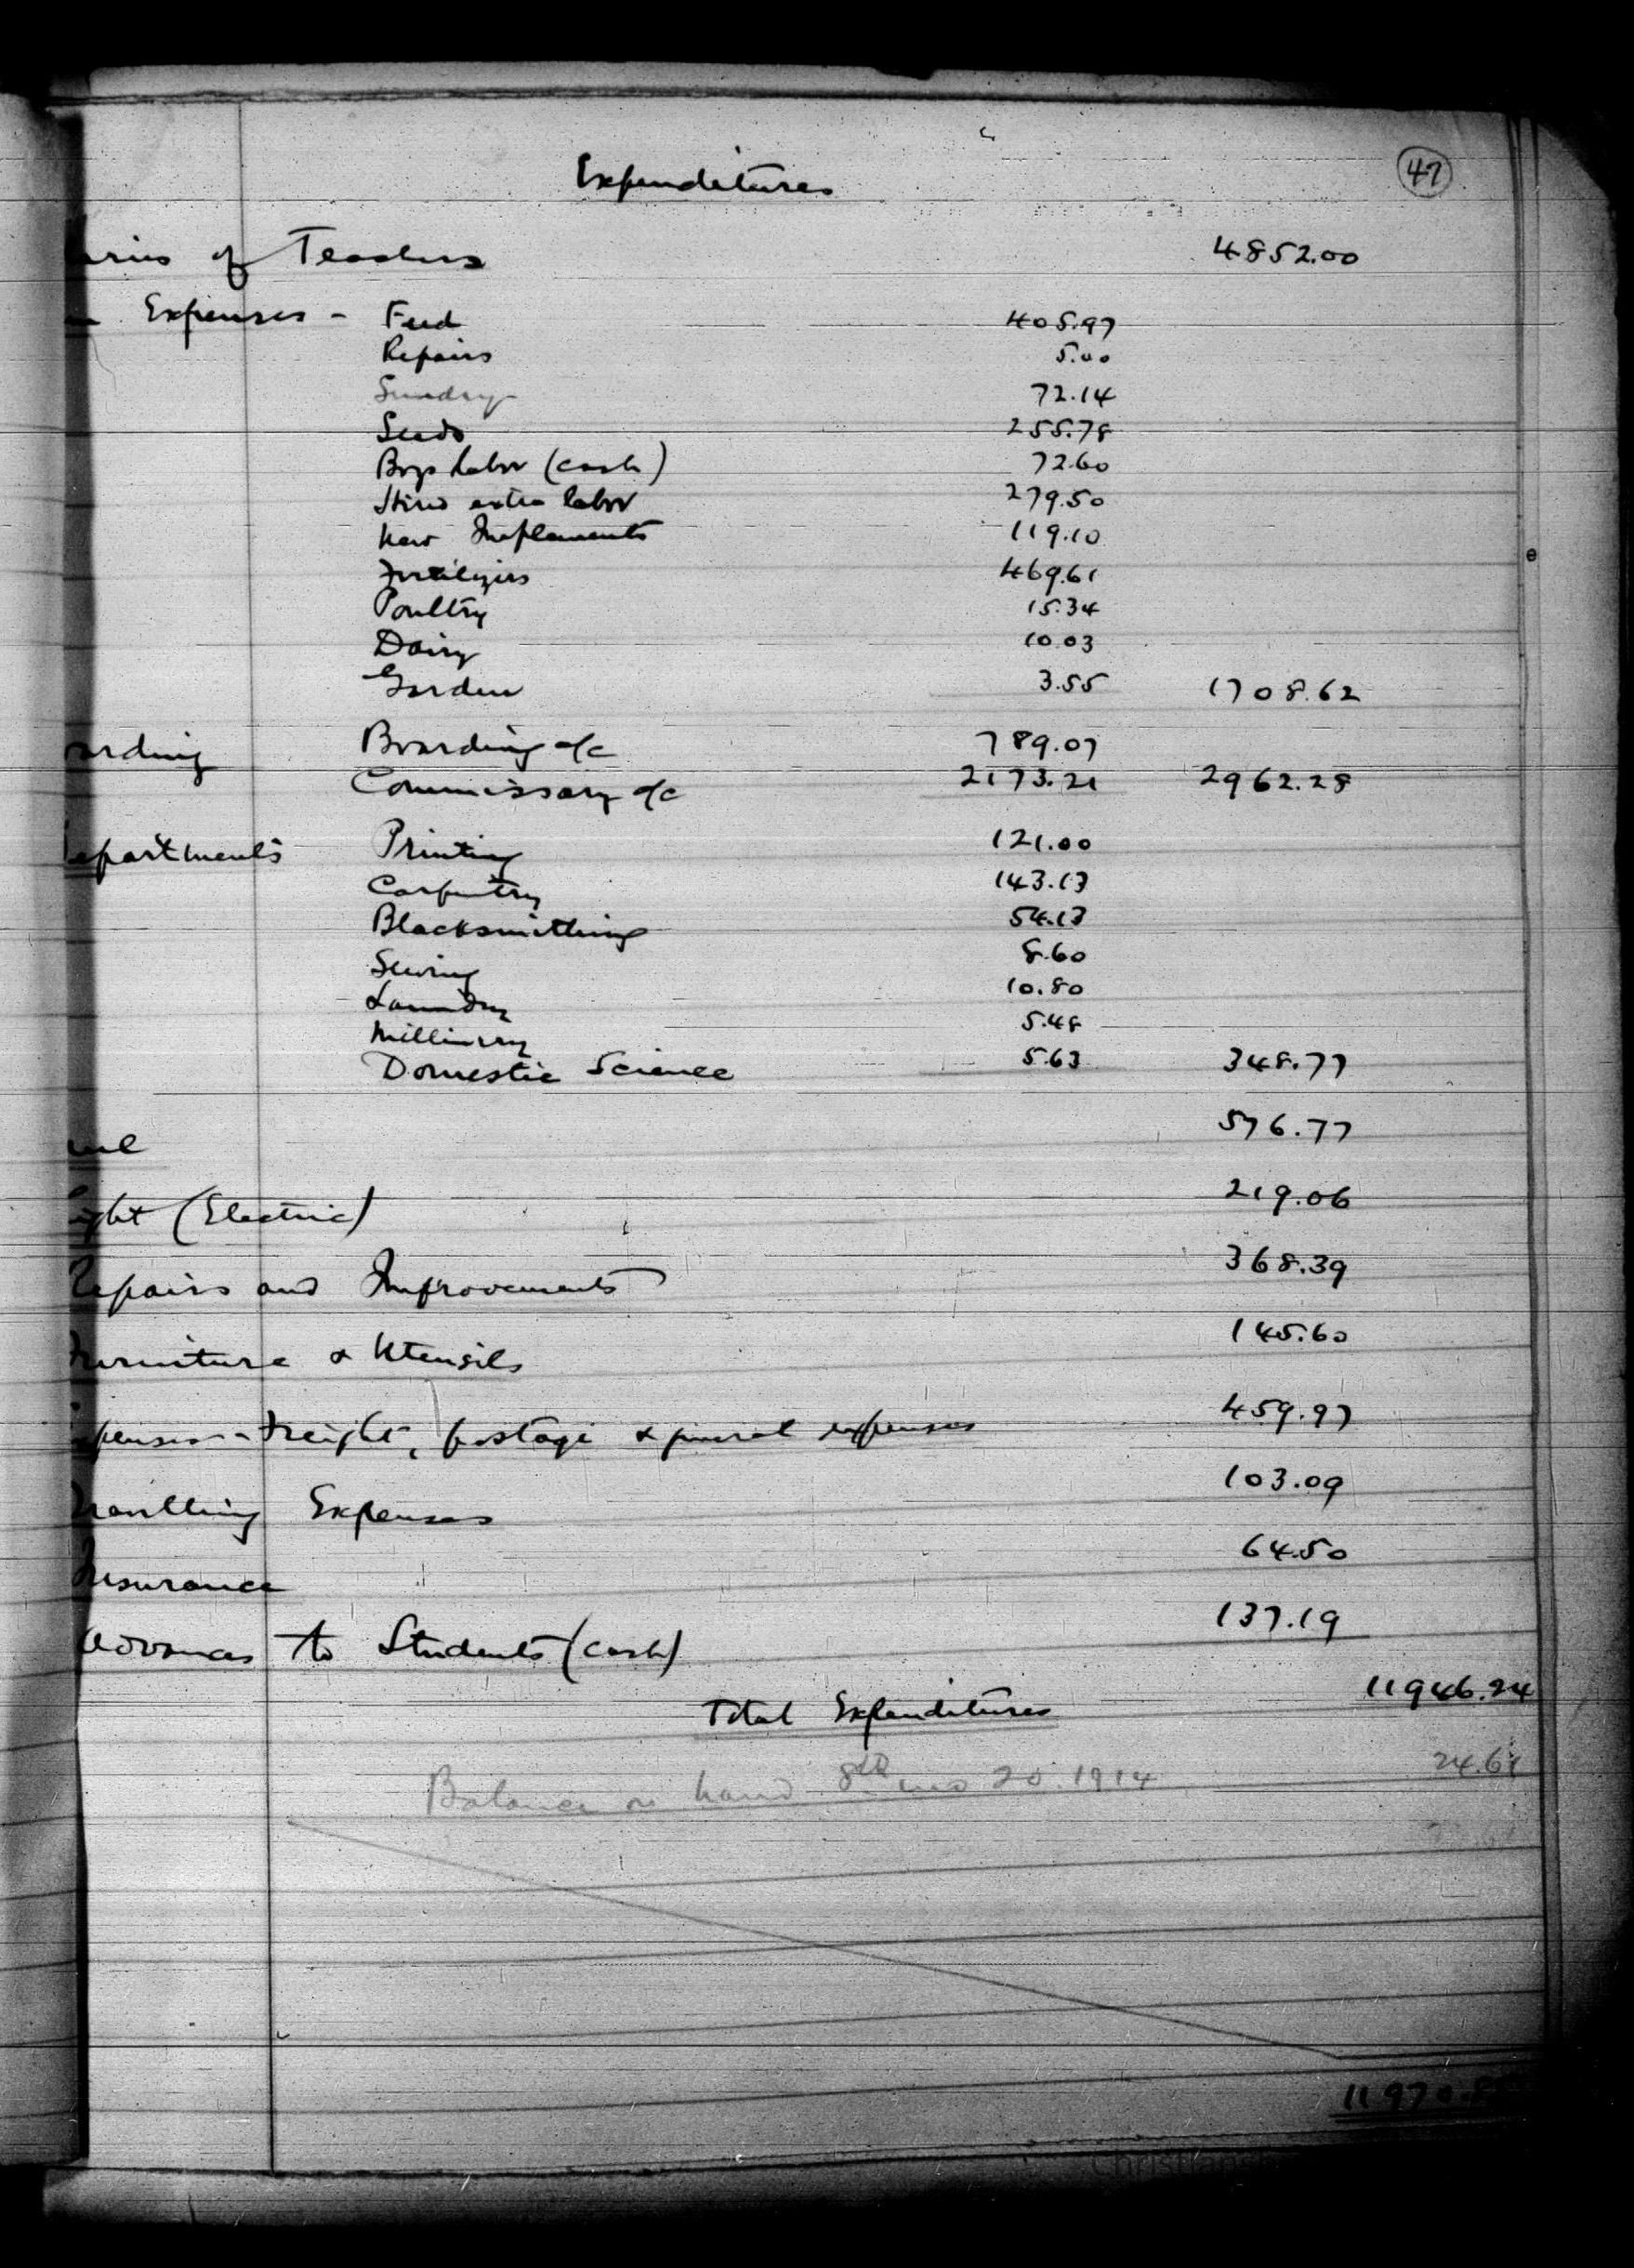 Expenditures
47
aries of Teachers 4852.00
Expenses - Feed 405.97
Repairs 5.00
Sundry 72.14
Seeds 255.78
Boys labor (cash) 72.60
Hired extra labor 279.50
New Implements 119.10
Fertilizers 469.61
Poultry 15.34
Dairy 10.03
Garden 3.55 1708.62
arding Boarding a/c 789.07
Commissary a/c 2173.21 2962.28
epartments Printing 121.00
Carpentry 143.13
Blacksmithing 54.13
Sewing 8.60
Laundry 10.80
Millinery 5.48
Domestic Science 5.63 348.77
uel 576.77
ight (Electric) 219.06
Repairs and Improvements 368.39
Furniture & Utensils 145.60
xpenses - Freight, postage & general expenses 459.97
Travelling Expenses 103.09
Insurance 64.50
Advances to Students (cash) 137.19
Total Expenditures 11946.24
Balance on hand 8th mo 20. 1914 24.61
11970.85
Christians